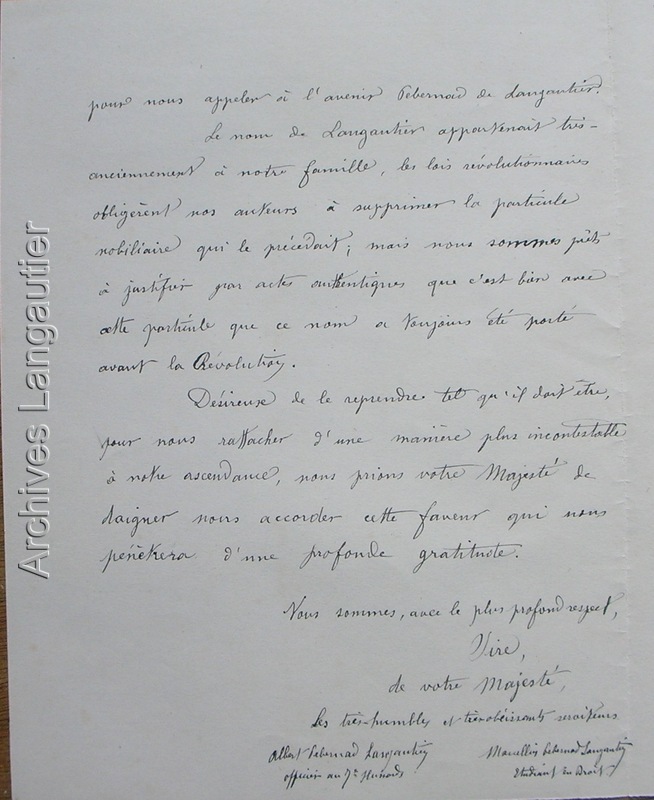 pour nous appeler à l'avenir Pebernad de Langautier.
Le nom de Langautier appartenait très-
anciennement à notre famille, les lois révolutionnaires
obligèrent nos auteurs à supprimer la particule
nobiliaire qui le précédait; mais nous sommes prêts
à justifier par actes authentiques que c'est bien avec
cette particule que ce nom a toujours été porté
avant la Révolution.
Désireux de le reprendre tel qu'il doit être,
pour nous rattacher d'une manière plus incontestable
à notre ascendance, nous prions votre Majesté de
daigner nous accorder cette faveur qui nous
pénètrera d'une profonde gratitude.
Nous sommes, avec le plus profond respect,
Sire,
de votre Majesté,
Les très-humbles et très obéissants serviteurs
Albert Pebernad Langautier
officier au 7e Hussards
Marcellin Pebernad Langautier
Etudiant en Droit
Archives Langautier